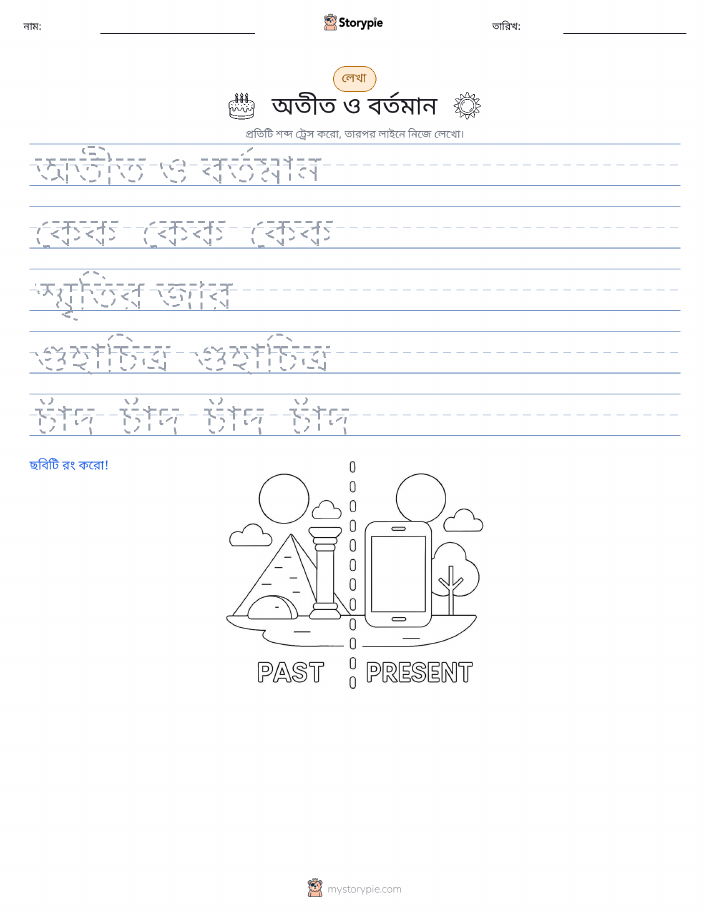 নাম:
Storypie
তারিখ:
লেখা
অতীত ও বর্তমান
প্রতিটি শব্দ ট্রেস করো, তারপর লাইনে নিজে লেখো।
অতীত ও বর্তমান
কেক কেক কেক
স্মৃতির জার
গুহাচিত্র গুহাচিত্র
চাঁদ চাঁদ চাঁদ চাঁদ
ছবিটি রং করো!
PAST PRESENT
mystorypie.com